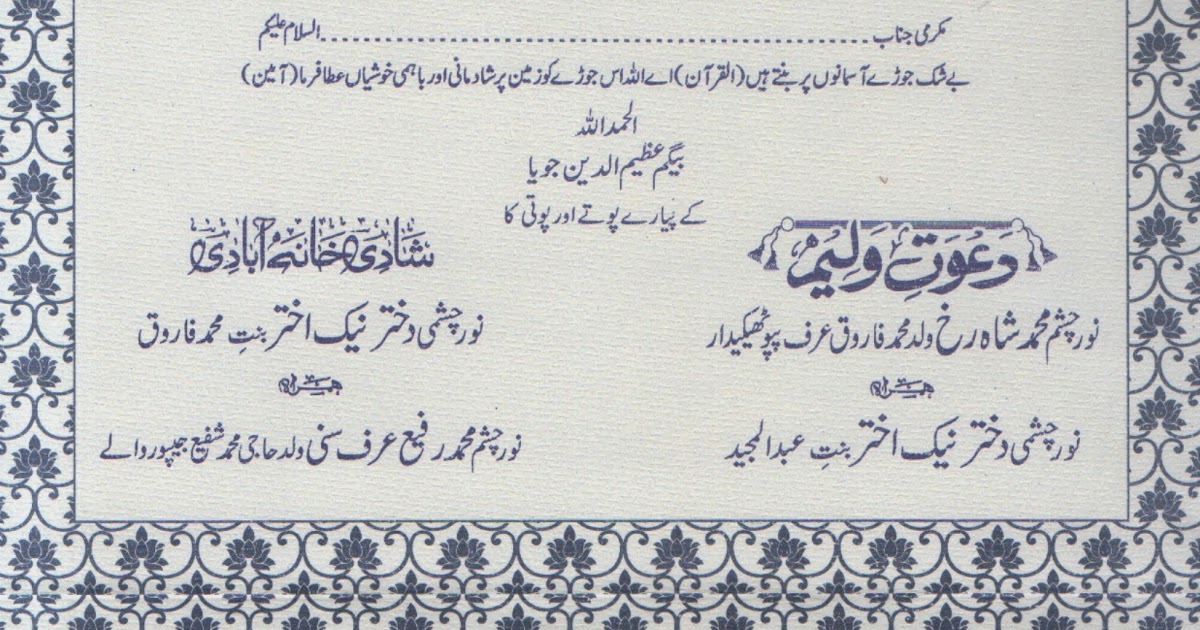 مکرمی جناب ........................................................ السلام علیکم
بے شک جوڑے آسمانوں پر بنتے ہیں (القرآن) اے اللہ اس جوڑے کو زمین پر شادمانی اور باہمی خوشیاں عطا فرما (آمین)
الحمداللہ
بیگم عظیم الدین جویا
کے پیارے پوتے اور پوتی کا
دعوتِ ولیمہ
نور چشم محمد شاہ رخ ولد محمد فاروق عرف پپو ٹھیکیدار
ہمراہ
نور چشمی دختر نیک اختر بنتِ عبدالمجید
شادی خانہ آبادی
نور چشمی دختر نیک اختر بنتِ محمد فاروق
ہمراہ
نور چشم محمد رفیع عرف سنی ولد حاجی محمد شفیع جیپور والے